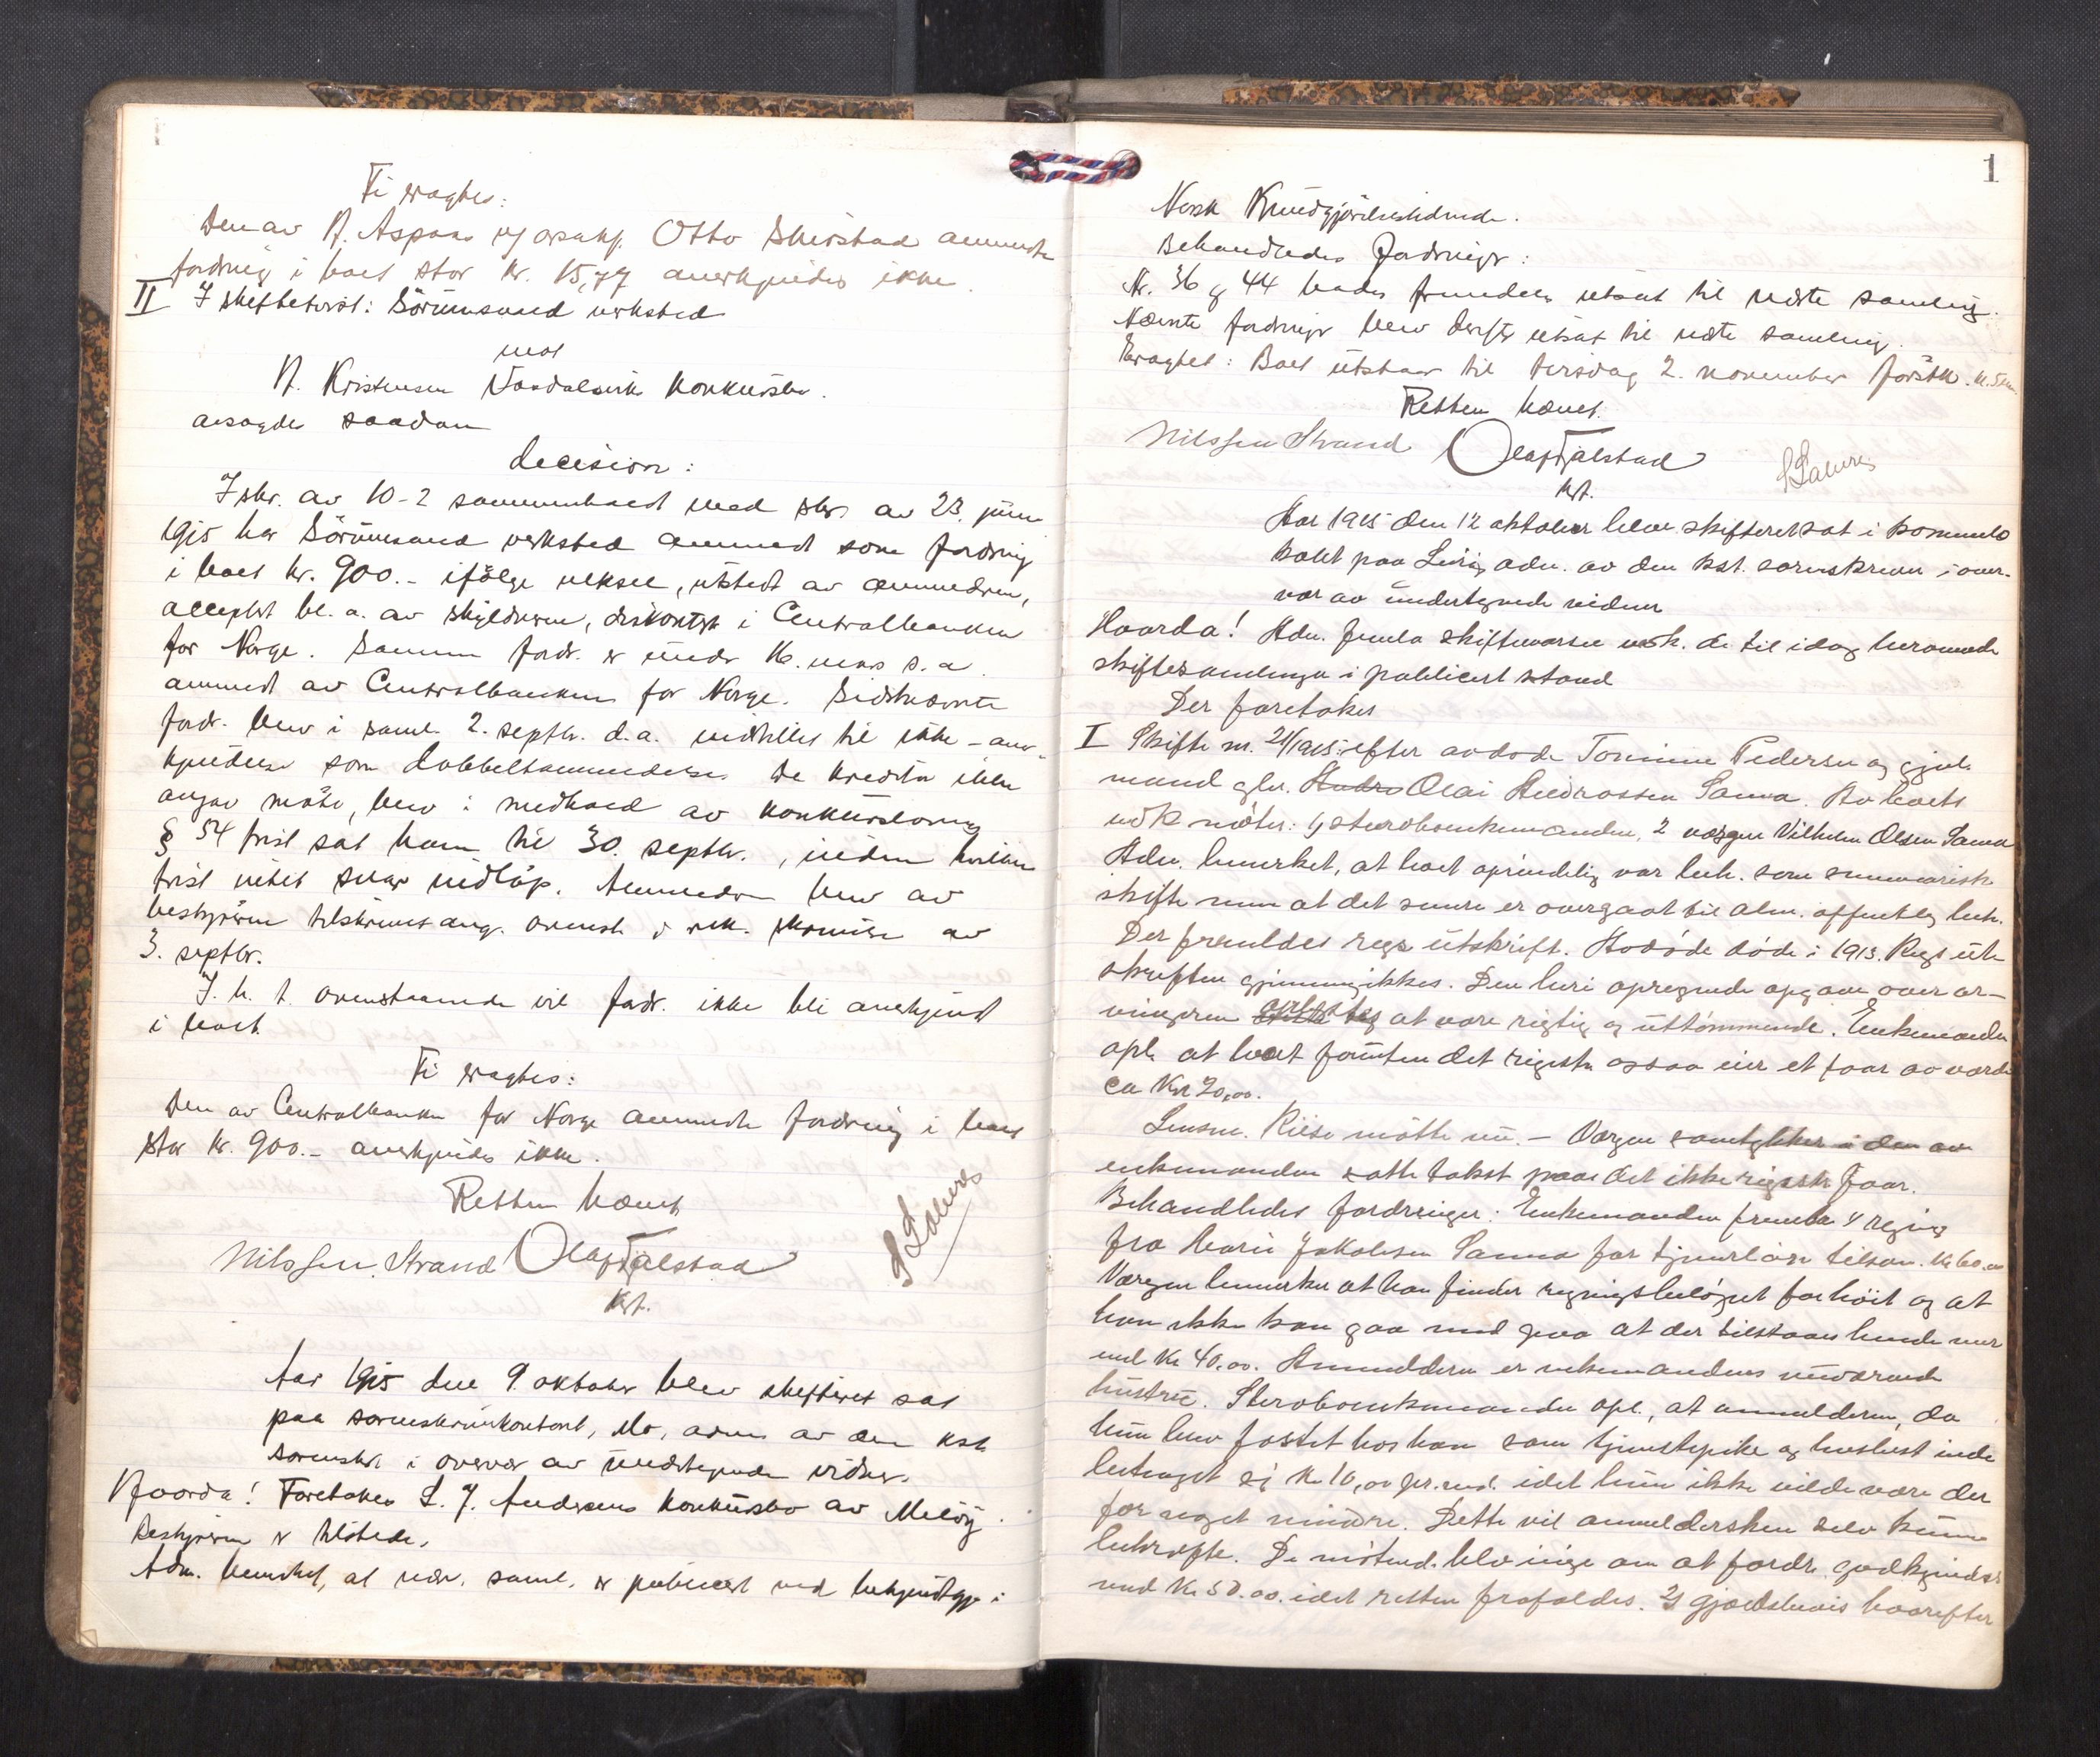 Ti eragtes:
Den av A. Aspaas og orsakf. Otto Skirstad anmeldte
fordring i boet stor kr. 15,77 anerkjendes ikke.
II I skiftetvist: Sörumsand verksted
mot
A. Kristensen konkursbo.
avsagdes saadan
decision:
I skr. av 10-2 sammenholdt med skr. av 23. juni
1915 har Sörumsand verksted anmeldt som fordring
i boet kr. 900.- ifölge veksel, utstedt av anmelderen,
acceptert bl. a. av skyldneren, diskontert i Centralbanken
for Norge. Samme fordr. er under 16. mars s. a.
anmeldt av Centralbanken for Norge. Sidstnævnte
fordr. blev i saml. 2. septbr. d. a. indstillet til ikke-aner-
kjendelse som dobbeltanmeldelse. Da kreditor ikke
angav möte, blev i medhold av konkurslovens
§ 54 frist sat ham til 30. septbr., inden hvilken
frist intet svar indlöp. Anmelderen blev av
bestyreren tilskrevet ang. ovenst. i rek. skrivelse av
3. septbr.
I. h. t. ovenstaaende vil fordr. ikke bli anerkjendt
i boet.
Ti eragtes:
Den av Centralbanken for Norge anmeldte fordring i boet
stor kr. 900.- anerkjendes ikke.
Retten hævet.
Nilssen Strand Olaf Fjalstad S Laures
kst.
Aar 1915 den 9. oktober blev skifteret sat
paa sorenskriverkontoret, Mo, adm. av den kst.
sorenskr. i overvær av undertegnede vidner.
Hvorda! Foretokes L. J. Andersens konkursbo av Melöy.
Bestyreren er tilstede.
Adm. bemerket, at nærv. saml. er publicert ved bekjendtgj. i
1
Norsk Kundgjörelsestidende.
Behandledes fordringer:
Nr. 36 og 44 hvades fremdeles utsat til næste samling.
Nævnte fordringer blev derefter utsat til næste samling.
Eragtet: Boet utstaar til tirsdag 2. november förstk. kl. 5 em
Retten hævet.
Nilssen Strand Olaf Fjalstad S Laures
kst.
Aar 1915 den 12 oktober blev skifteret sat i kommune
lokalet paa adm. av den kst. sorenskriver i over-
vær av undertegnede vidner
Hvorda! Adm. fremla skiftevarsel vedk. de til idag berammede
skiftesamlinger i publicert stand
Der foretokes
I Skifte nr. 21/1915 efter avdöde Tomine Pedersen og gjenl.
mand glv. Andre Olai Andreassen Sauva. Av boets
vedk. möter: 1) sterbboenkemanden, 2 værgen Vilhelm Olsen Sauva
Adm. bemerket, at boet oprindelig var beh. som summarisk
skifte men at det senere er overgaat til alm. offentlig beh.
Der fremldes regs utskrift. Avdöde döde i 1913. Regs. ut-
skriften gjennemgikkes. Den heri opregnede opgave over ar-
vingerne at være rigtig og uttömmende. Enkemanden
opl. at boet foruten det registr. ogsaa eier et faar av værdi
ca Kr 20,00.
Lensm. Riise mötte nu. - Værgen samtykker i den av
enkemanden satte takst paa det ikke registr. faar.
Behandledes fordringer: Enkemanden fremla 1) regning
fra Marie Jakobsen Sauva for tjenerlön tilsam. kr 60.00
Værgen bemerker at han finder regningsbelöpet for höit og at
han ikke kan gaa med paa at der tilstaaes hende mer
end kr 40.00. Anmelderen er enkemandens nuværende
hustru. Sterbboenkemanden opl., at anmelderen, da
hun blev fæstet hos ham som tjenestepike og husbest. inde
betinget sig kr 10,00 pr. md. idet hun ikke vilde være der
for noget mindre. Dette vil anmeldersken selv kunne
bekræfte. De mötende blev enige om at fordr. godkjendes
med kr 50.00. idet resten frafaldes. 2) gjældsbevis hvorefter